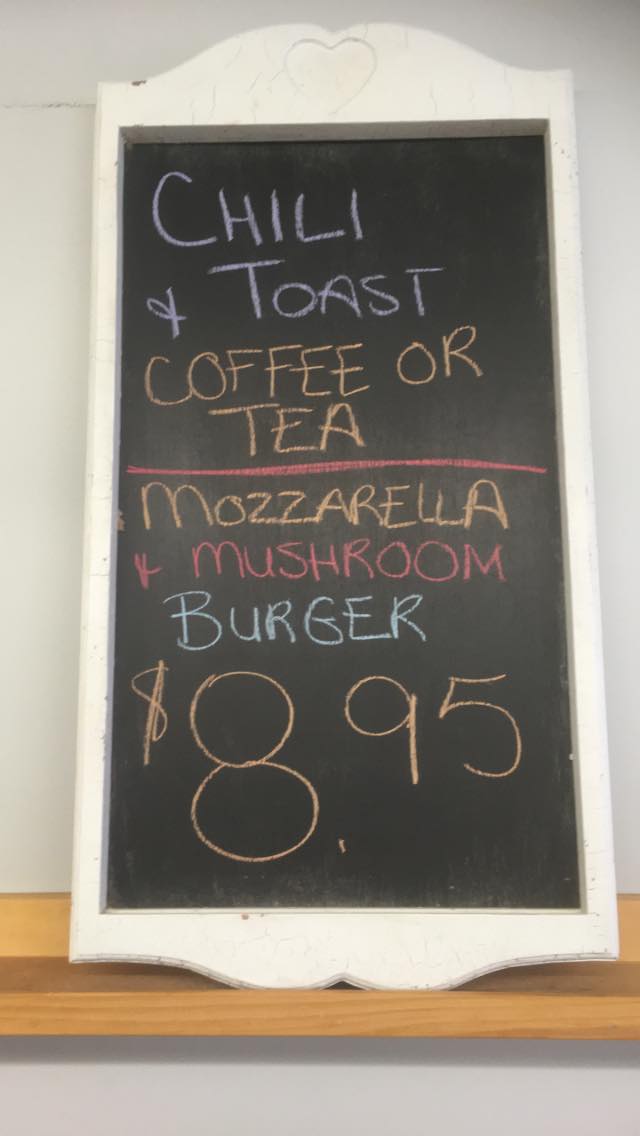 CHILI
& TOAST
COFFEE OR
TEA
MOZZARELLA
& MUSHROOM
BURGER
$8.95